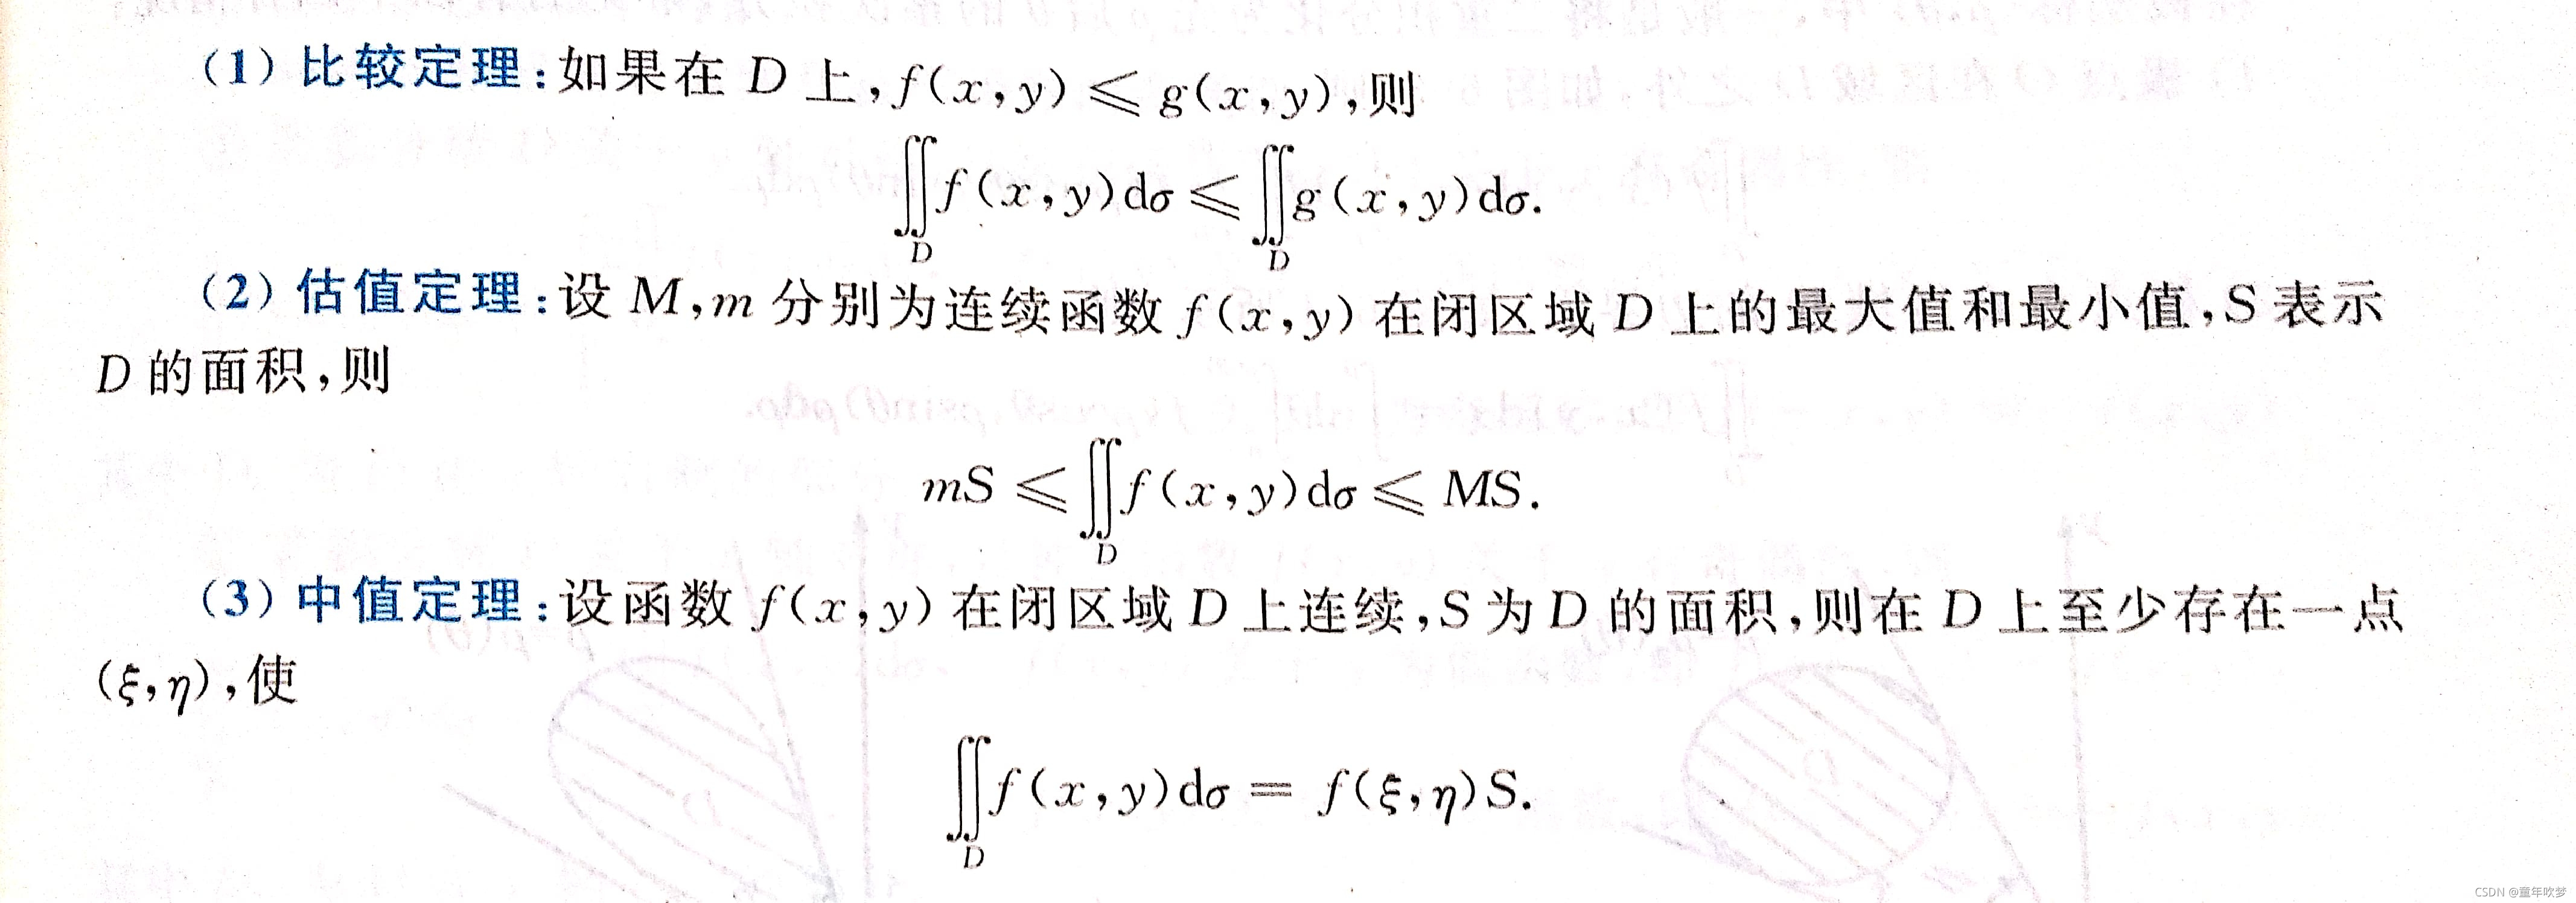 (1) 比较定理:如果在 D 上,f(x,y) ⩽ g(x,y),则
∬_D f(x,y)dσ ⩽ ∬_D g(x,y)dσ.
(2) 估值定理:设 M,m 分别为连续函数 f(x,y) 在闭区域 D 上的最大值和最小值,S 表示
D 的面积,则
mS ⩽ ∬_D f(x,y)dσ ⩽ MS.
(3) 中值定理:设函数 f(x,y) 在闭区域 D 上连续,S 为 D 的面积,则在 D 上至少存在一点
(ξ,η),使
∬_D f(x,y)dσ = f(ξ,η)S.
CSDN @童年吹梦